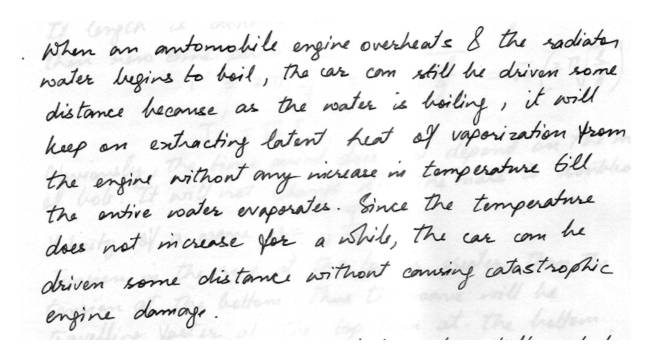 When an automobile engine overheats & the radiator
water begins to boil, the car can still be driven some
distance because as the water is boiling, it will
keep on extracting latent heat of vaporization from
the engine without any increase in temperature till
the entire water evaporates. Since the temperature
does not increase for a while, the car can be
driven some distance without causing catastrophic
engine damage.